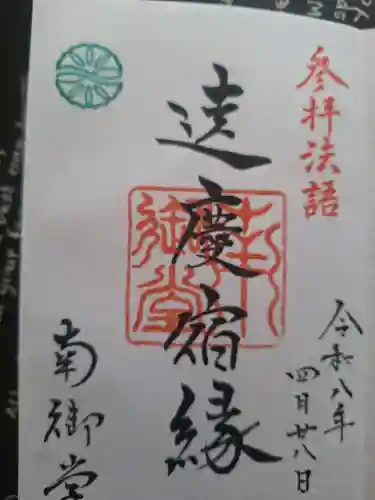 参拝法語
令和八年
四月廿八日
遠慶宿縁
南御堂
南御堂